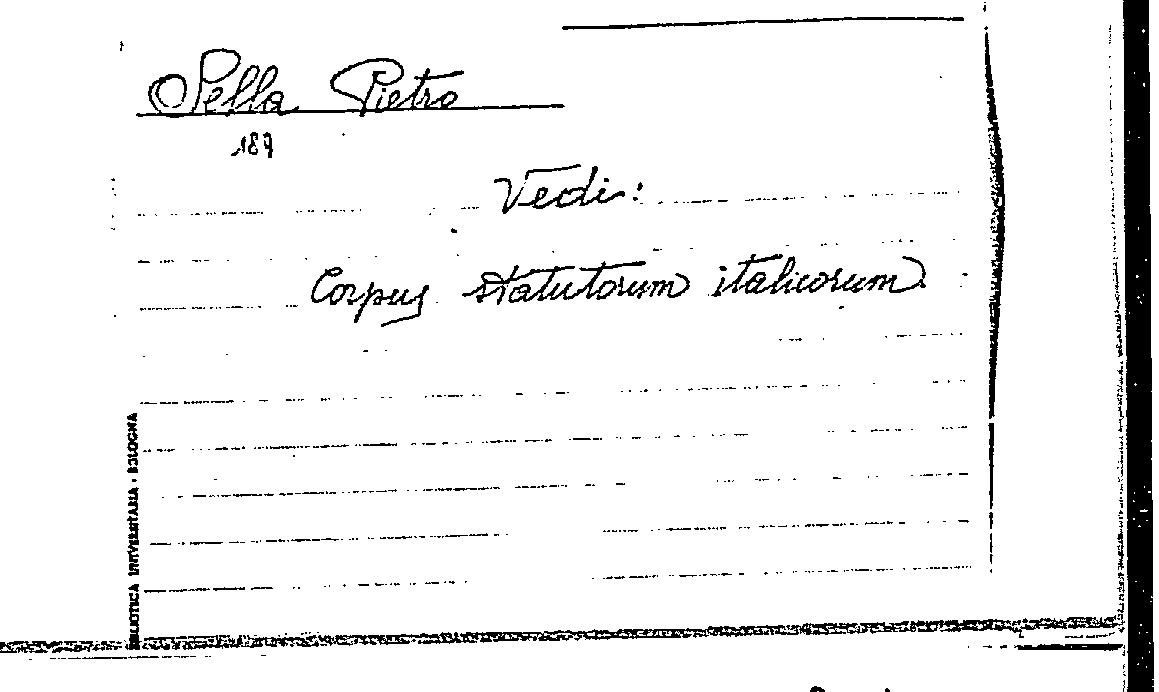 Sella Pietro
Vedi:
Corpus statutorum italicorum.
BIBLIOTICA UNIVERSITARIA - BOLOGNA